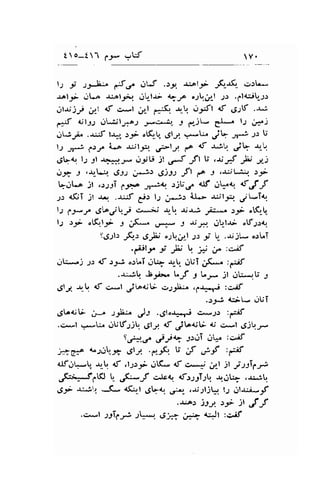 ۱۷۰
کتاب سوم ۴۱۶–۴۱۵
سعادت یکدیگر خواهند بود. گمان می‌کنم منظور تو را
دریافته‌ام. در این‌باره هرچه خدایان بخواهند همان خواهد
شد. کاری که اکنون باید بکنیم این است که این فرزندان
زمین را مسلح سازیم و پشت‌سر رهبرانشان روانه کنیم
تا در شهر جائی مناسب برای پایگاه خود پیدا کنند. مقرشان
باید جائی باشد که هم براحتی بتوانند همهٔ مردم شهر را
زیر نظر گیرند، تا اگر کسی از قانون سرپیچد او را به‌جای
خود بنشانند، و هم اگر روزی دشمن روی بنماید، و چون
گرگی‌که به‌میان گله می‌تازد به‌شهر هجوم آورد، از همان‌جا
به‌آسانی بتوانند حملهٔ دشمن را دفع کنند. بعد از آنکه در
پایگاه خود مستقر شدند باید نخست قربانی‌های مرسوم را
به‌درگاه خدایان ببرند و سپس مسکن و خوابگاه خود را
آماده سازند. یا تو در این‌باره نظری دیگر داری؟
گفت: من نیز با نظر تو موافقم.
گفتم: مسکن آنان باید چنان آماده شود که در زمستان
و تابستان از سرما و گرما محفوظ باشند.
گفت: فهمیدم، منظورت خانه‌هائی است که باید برای
آنان ساخته شود.
گفتم: درست فهمیده‌ای. ولی منظور من خانه‌های
سربازی است نه خانه‌هائی که برای بازرگانان مناسب است.
گفت: میان آن‌دو چه‌فرقی می‌بینی؟
گفتم: گوش کن تا بگویم. برای چوپان‌رمه هیچ‌چیز
شرم‌آورتر از این نیست که سگان خودرا، که باید پاسبان‌گله
باشند، چنان‌بد بارآوردکه به‌علت گرسنگی یا لگام‌گسیختگی
گوسفندان را بیازارند، یعنی به‌جای اینکه سگ باشند خوی
گرگی از خود بروز دهند.
گفت: البته چنین چیزی بسیار شرم‌آور است.